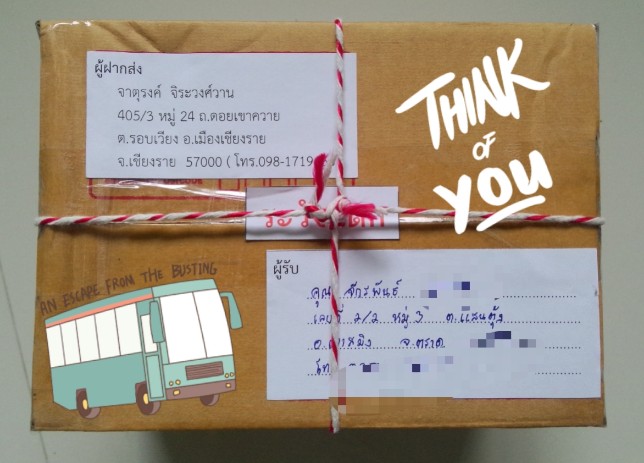 ผู้ฝากส่ง
จาตุรงค์ จิระวงศ์วาน
405/3 หมู่ 24 ถ.ดอยเขาควาย
ต.รอบเวียง อ.เมืองเชียงราย
จ.เชียงราย 57000 ( โทร.098-1719
THINK
OF
YOU
ระวังแตก
AN ESCAPE FROM THE BUSTING
ผู้รับ
คุณ จักรพันธ์
เลขที่ 2/2 หมู่ 3 ต.แสนตุ้ง
อ.เขาสมิง จ.ตราด